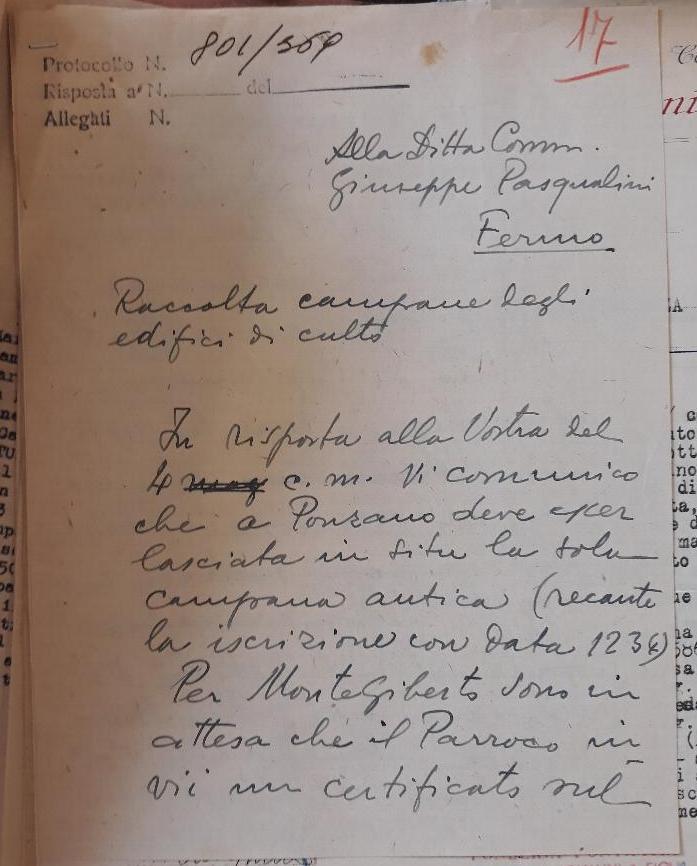 17
Protocollo N. 801/
Risposta a N. del
Alleghti N.
Alla Ditta Comm.
Giuseppe Pasqualini
Fermo
Raccolta campane degli
edifici di culto
In risposta alla Vostra del
4 mag c. m. Vi comunico
che a Ponzano deve esser
lasciata in situ la sola
campana antica (recante
la iscrizione con data 123
Per MonteGiberto sono in
attesa che il Parroco in
vii un certificato sul